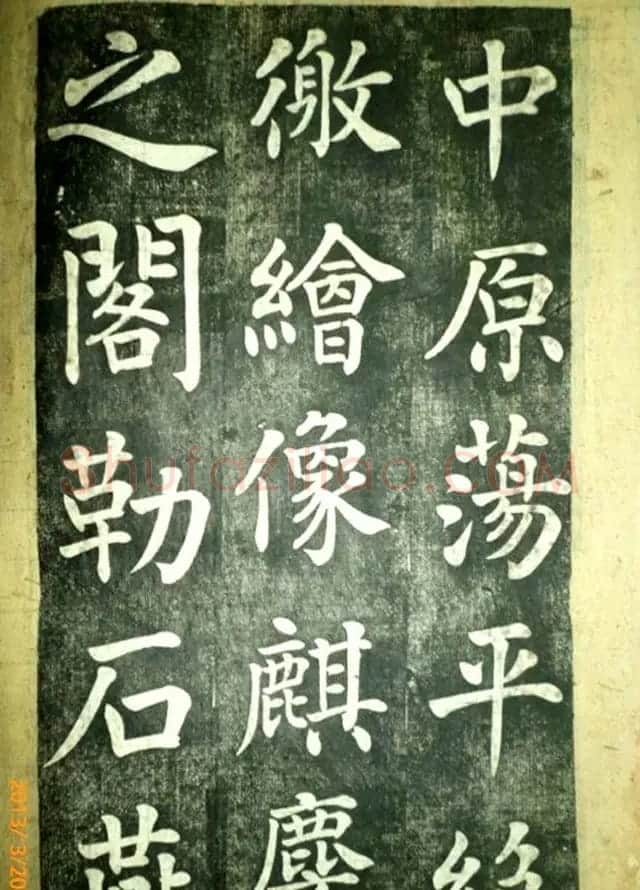 中原蕩平
徼繪像麒
之閣勒石燕
Shufaziliao.COM
2013/3/20